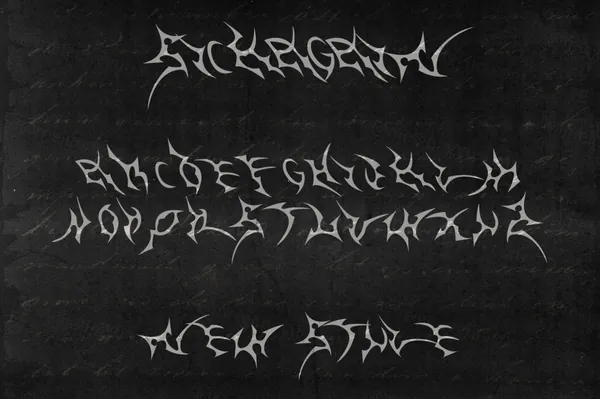 ABCDEFGHIJKLM
NOPQRSTUVWXYZ
NEW STYLE